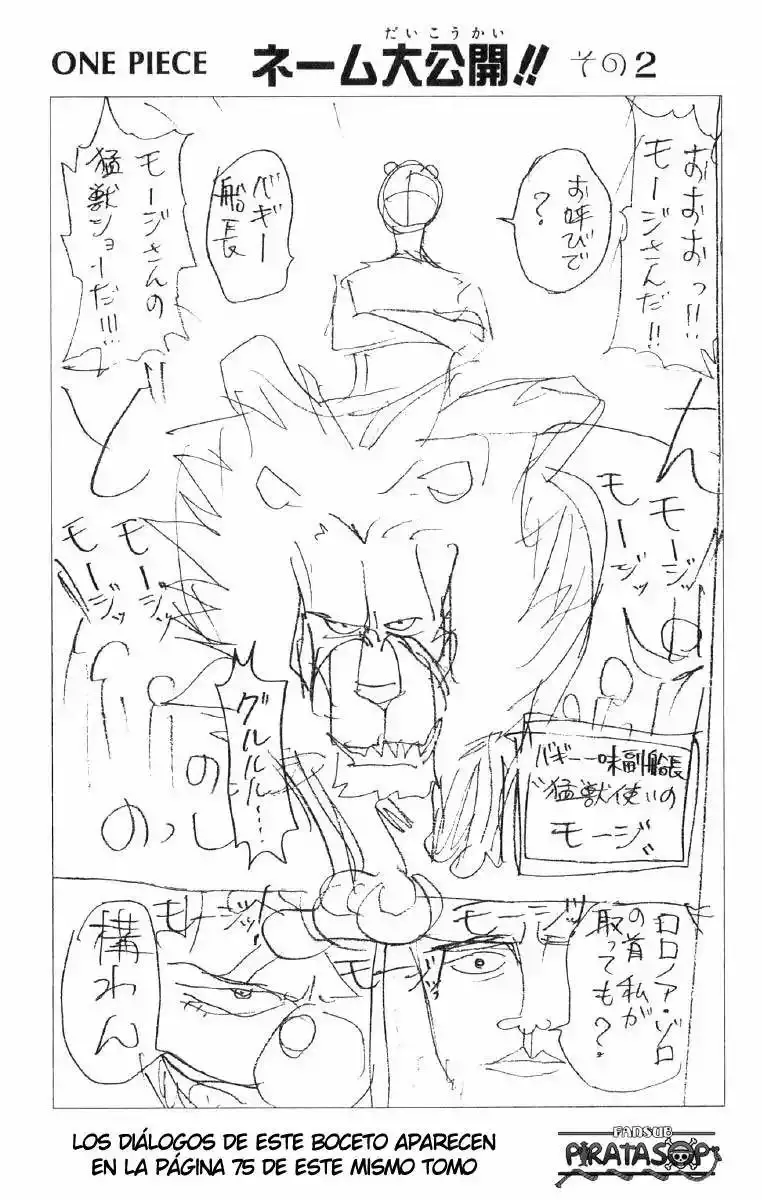 ONE PIECE ネーム大公開!! その2
だいこうかい
おおおっ!!
モージさんだ!!
お呼びで
?
バギー
船長
モージさんの
猛獣ショーだ!!!
モージッ
モージッ
モージッ
モージッ
グルルル…
のっし
の
バギー一味副船長
"猛獣使いの
モージ"
ロロノア・ゾロ
の首 私が
取っても?
モージッ
モージッ
モージッ
構わん
LOS DIÁLOGOS DE ESTE BOCETO APARECEN
EN LA PÁGINA 75 DE ESTE MISMO TOMO
FANSUB
PIRATASOP